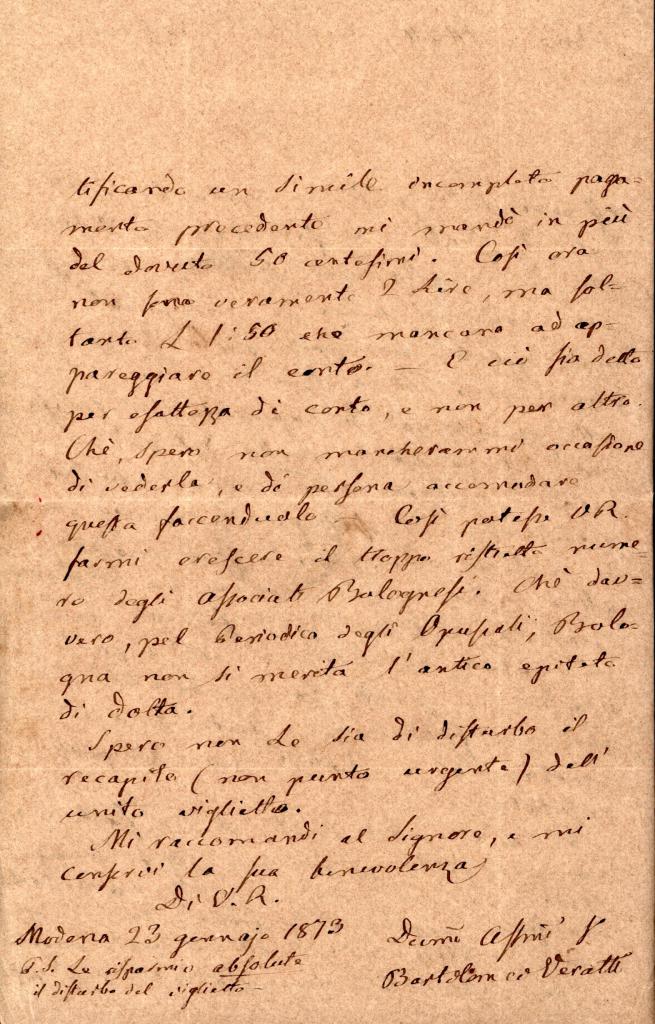 tificando un simile incompleto paga=
mento precedente mi mandò in più
del dovuto 50 centesimi. Così ora
non sono veramente 2 Lire, ma sol-
tanto L 1:50 che mancano ad ap-
pareggiare il conto. — E ciò sia detto
per esattezza di conto, e non per altro.
Chè, spero non mancherammi occasione
di vederla, e di persona accomodare
questa faccenduola — Così potesse V.R.
farmi crescere il troppo ristretto nume=
ro degli Associati Bolognesi. Chè dav=
vero, pel Periodico degli Opuscoli, Bolo-
gna non si merita l'antico epiteto
di dotta.
Spero non Le sia di disturbo il
recapito (non punto urgente) dell'
unito viglietto.
Mi raccomandi al Signore, e mi
conservi la sua benevolenza
Di V.R.
Modena 23 gennajo 1873
Bartolomeo Veratti
P.S. Le risparmio absolute
il disturbo del viglietto —